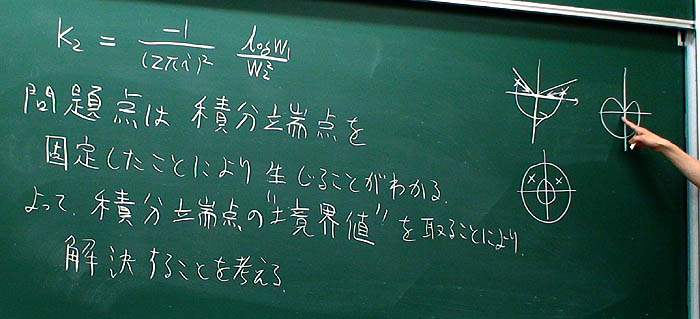 K₂ = -1/(2πi)² logW₁/W₂²
問題点は 積分端点を
固定したことにより 生じることがわかる.
よって、積分端点の"境界値"を取ることにより、
解決することを考える.